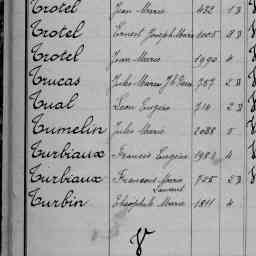 Trotel Jean Marie 432 1 D
Trotel Ernest Joseph Marie 1005 8 D
Trotel Jean Marie 1990 4
Trucas Jules Marie 757 2 D
Tual Léon Eugène 714 2 D
Tumelin Jules Marie 2088 5
Turbiaux Francis Eugène 1982 4
Turbiaux François Marie 705 2 D
Laurent
Turbin Théophile Marie 1811 4
V